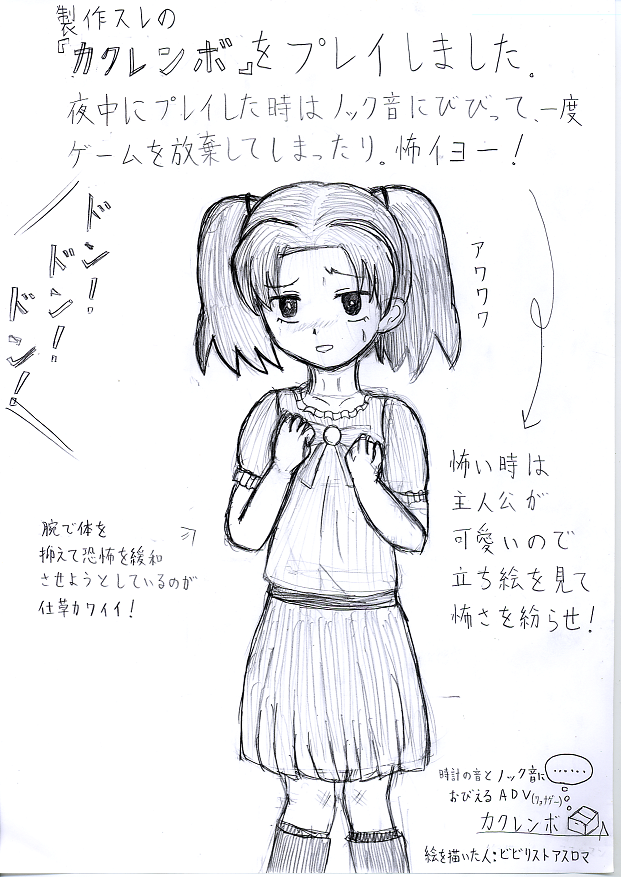 製作スレの
『カクレンボ』をプレイしました。
夜中にプレイした時はノック音にびびって、一度
ゲームを放棄してしまったり。怖イヨー！
ドン！
ドン！
ドン！
アワワワ
怖い時は
主人公が
可愛いので
立ち絵を見て
怖さを紛らせ！
腕で体を
抑えて恐怖を緩和
させようとしているのが
仕草カワイイ！
……
時計の音とノック音に
おびえるADV
カクレンボ
絵を描いた人：ビビリストアスロマ